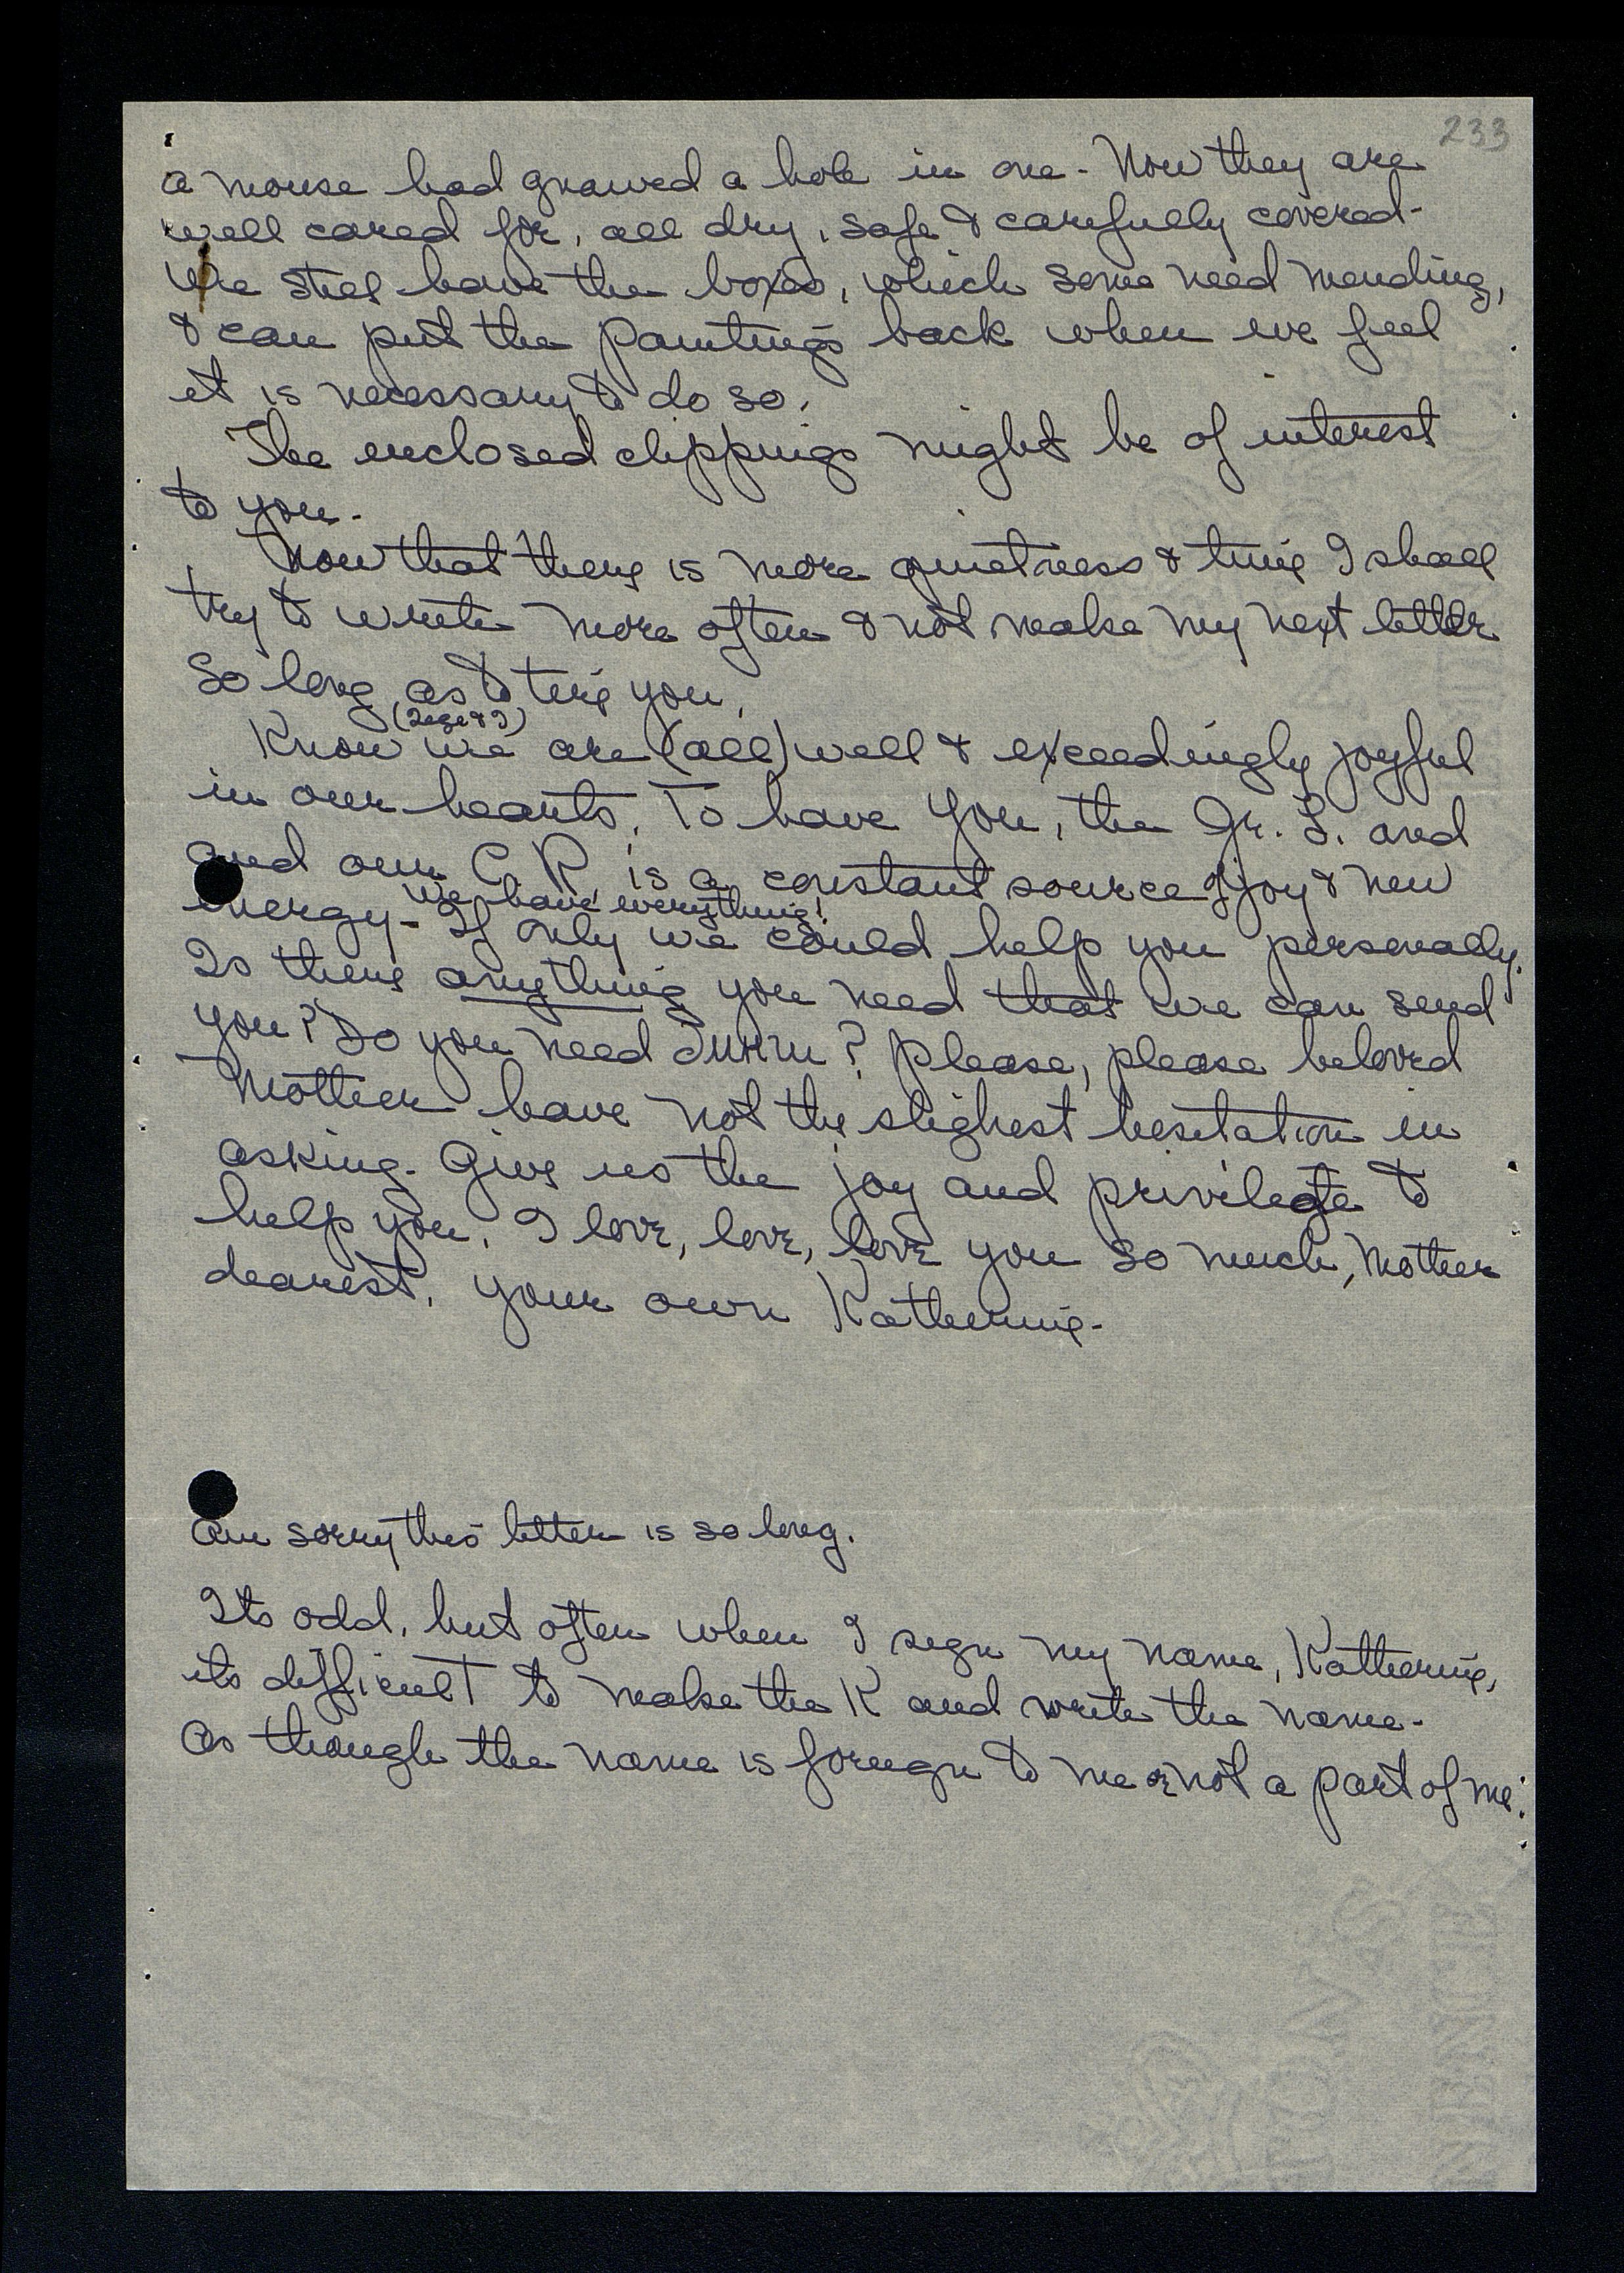 233
a mouse had gnawed a hole in one - Now they are
well cared for, all dry, safe & carefully covered -
We still have the boxes, which some need mending,
& can put the Paintings back when we feel
it is necessary to do so.
The enclosed clippings might be of interest
to you -
Now that there is more quietness & time I shall
try to write more often & not make my next letter
so long as to tire you.
(Inge & I)
Know we are (all) well & exceedingly joyful
in our hearts. To have You, the Gr. L. and
and our C.R. is a constant source of joy & new
we have everything!
energy - If only we could help you personally.
Is there anything you need that we can send
you? Do you need ? Please, please beloved
Mother have not the slighest hesitation in
asking. Give us the joy and privilege to
help you. I love, love, love you so much, Mother
dearest. Your own Katherine -
Am sorry this letter is so long.
Its odd, but often when I sign my name, Katherine,
its difficult to make the K and write the name -
as though the name is foreign to me or not a part of me.